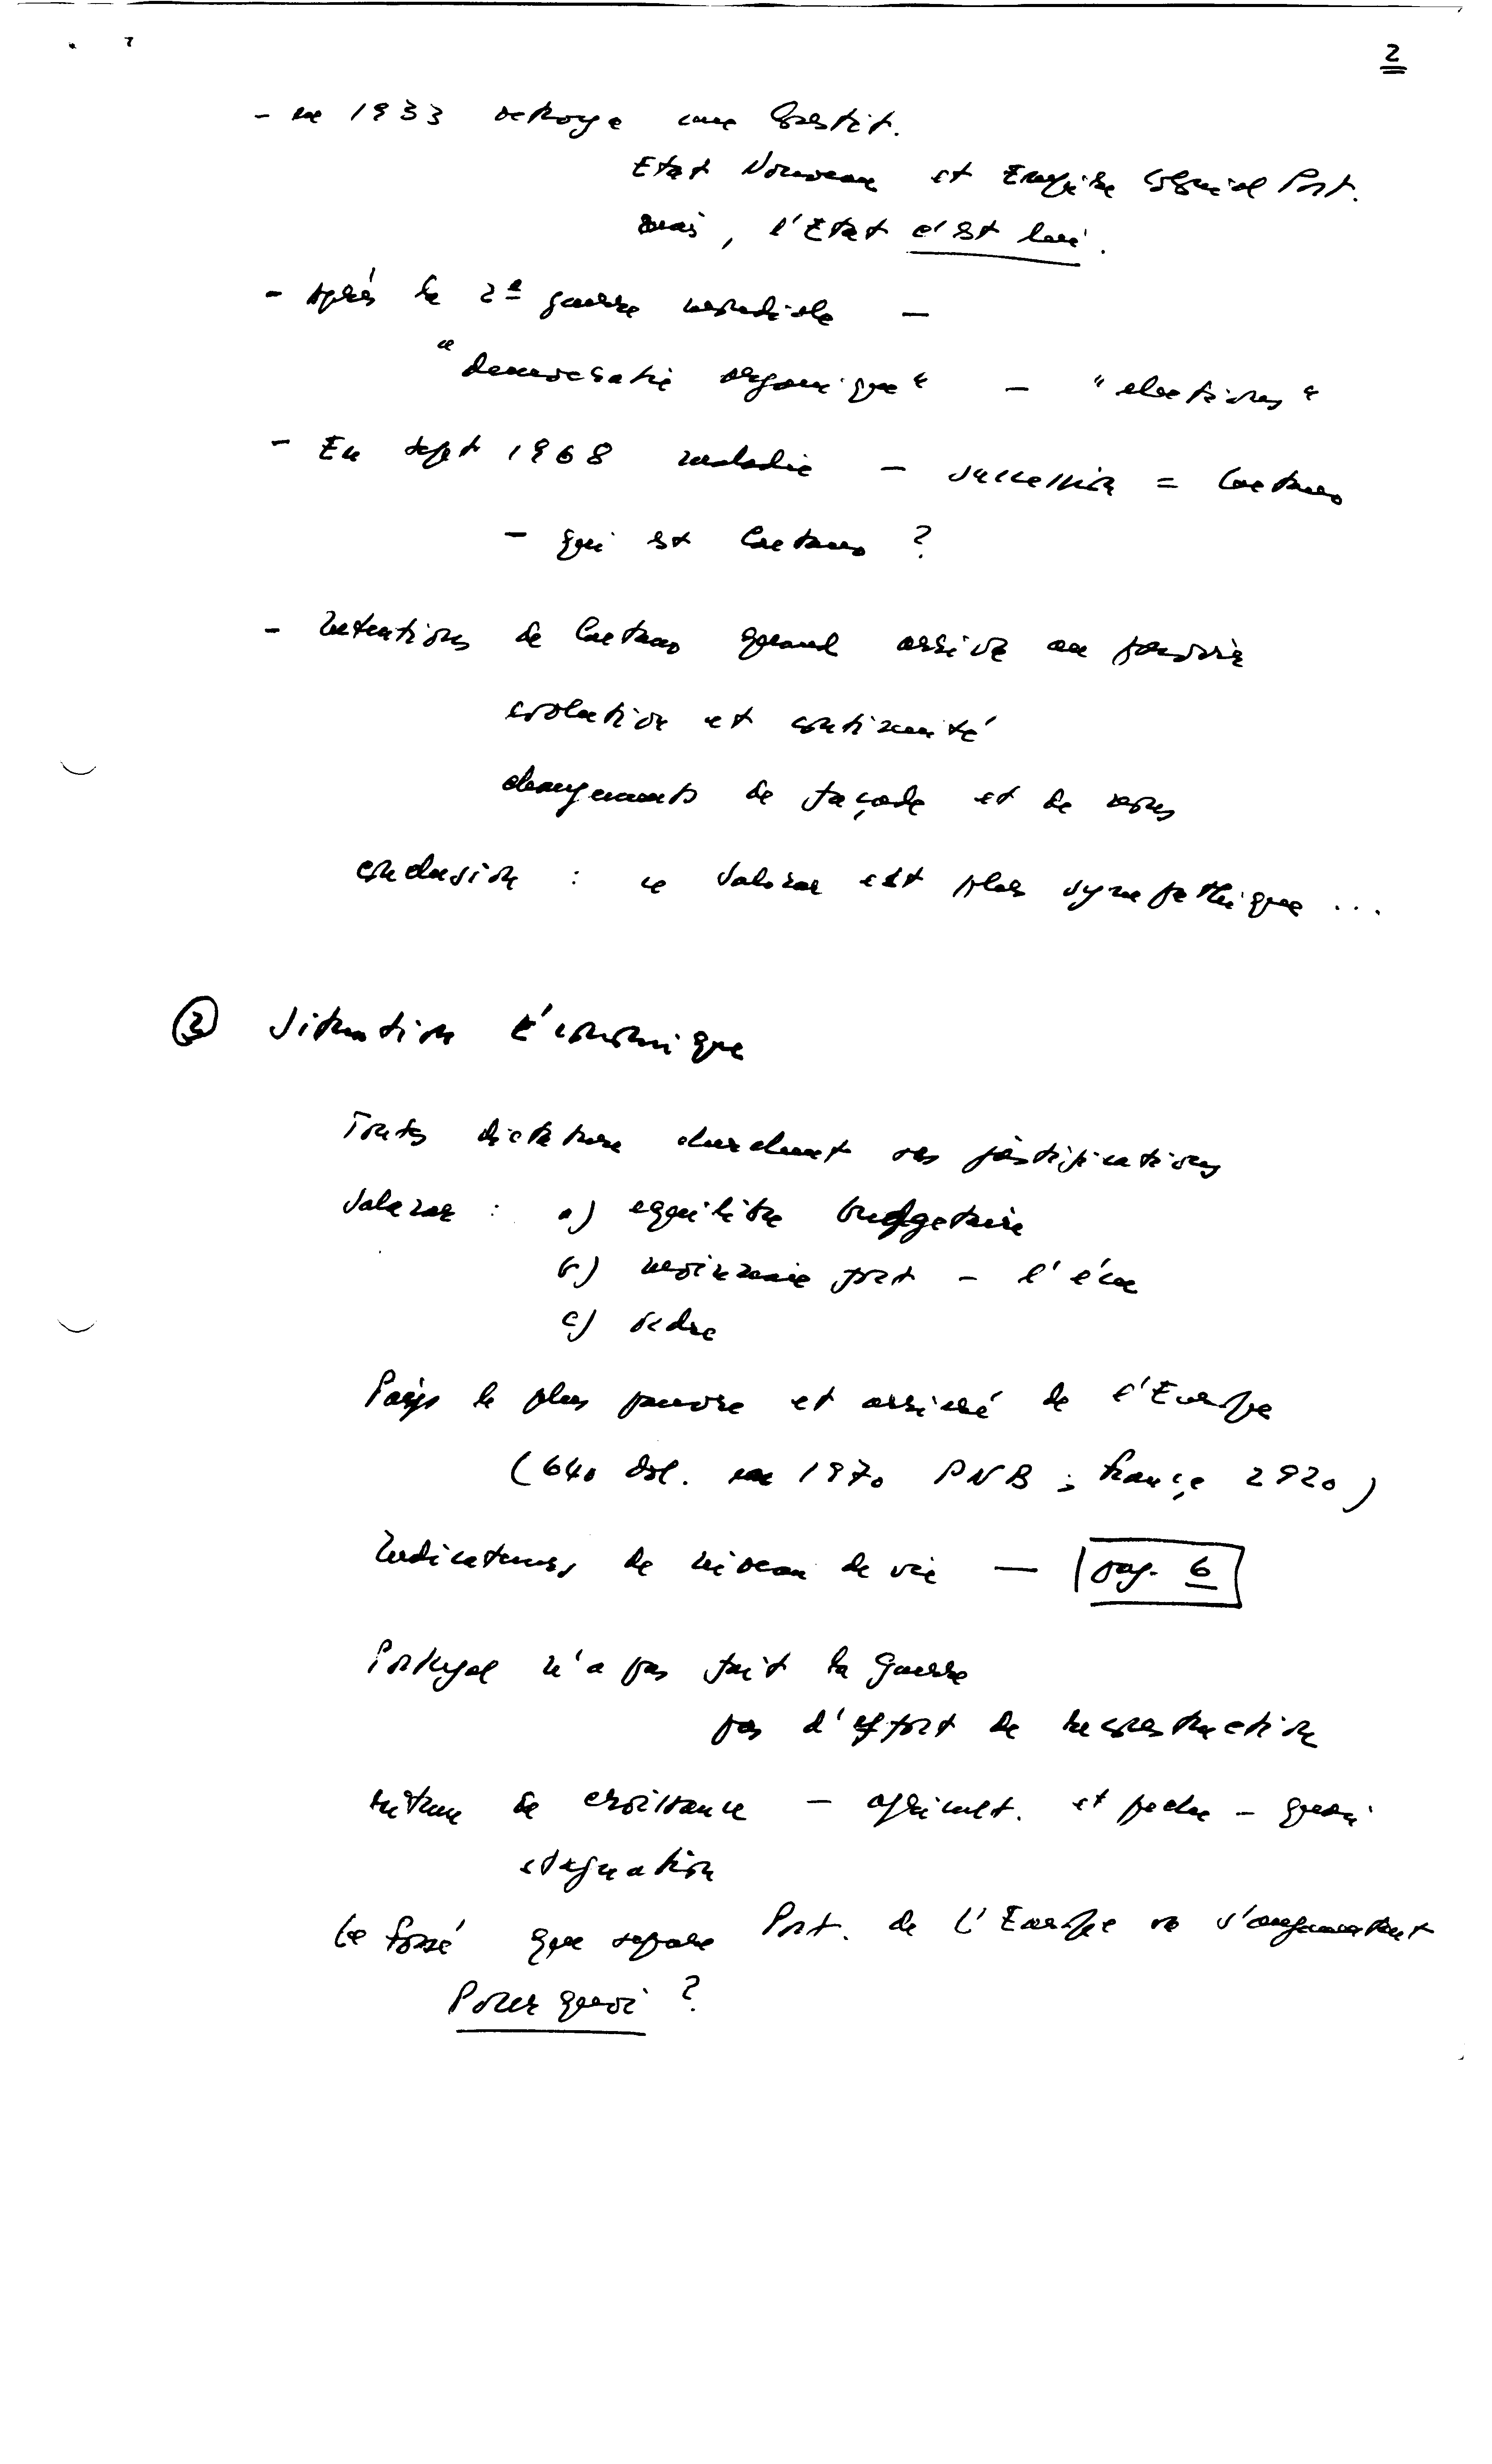 2
- en 1933 octroye une Constit.
Etat Nouveau et Empire Colonial Port.
mais, l'Etat c'est lui.
- Après la 2e guerre mondiale -
"democratie organique" - "elections"
- En sept 1968 maladie - succession = Caetano
- qui est Caetano ?
- Intentions de Caetano quand arrive au pouvoir
evolution et continuité
changements de façade et de noms
conclusion : ce Salazar est plus sympathique ...
② Situation Économique
Toutes dictature cherchent ses justifications
Salazar : a) equilibre budgetaire
b) monnaie fort - l'écu
c) ordre
Pays le plus pauvre et arrieré de l'Europe
(640 dol. en 1970 PNB ; France 2920)
Indicateurs de niveau de vie — pag. 6
Portugal n'a pas fait la guerre
pas d'effort de reconstruction
ritme de croissance - agricult. et peche - quasi
stagnation
Le fossé que separe Port. de l'Europe va s'augmentant
Pourquoi ?